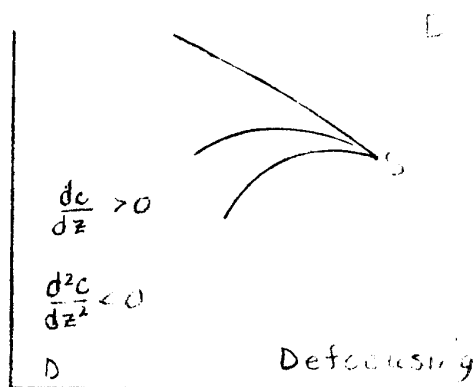 S
dc/dz > 0
d²c/dz² < 0
D
Defocusing